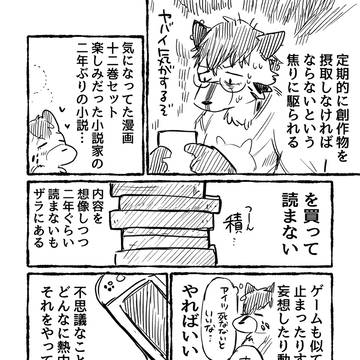 定期的に創作物を
摂取しなければ
ならないという
焦りに駆られる
ヤバイ気がするぞ
気になってた漫画
十二巻セット
楽しみだった小説家の
二年ぶりの小説…
を買って
読まない
積…
内容を
想像しつつ
二年ぐらい
読まないも
ザラにある
ゲームも似
止まったりす
妄想したり動
やればいい
不思議なこと
どんなに熱中
それをやって